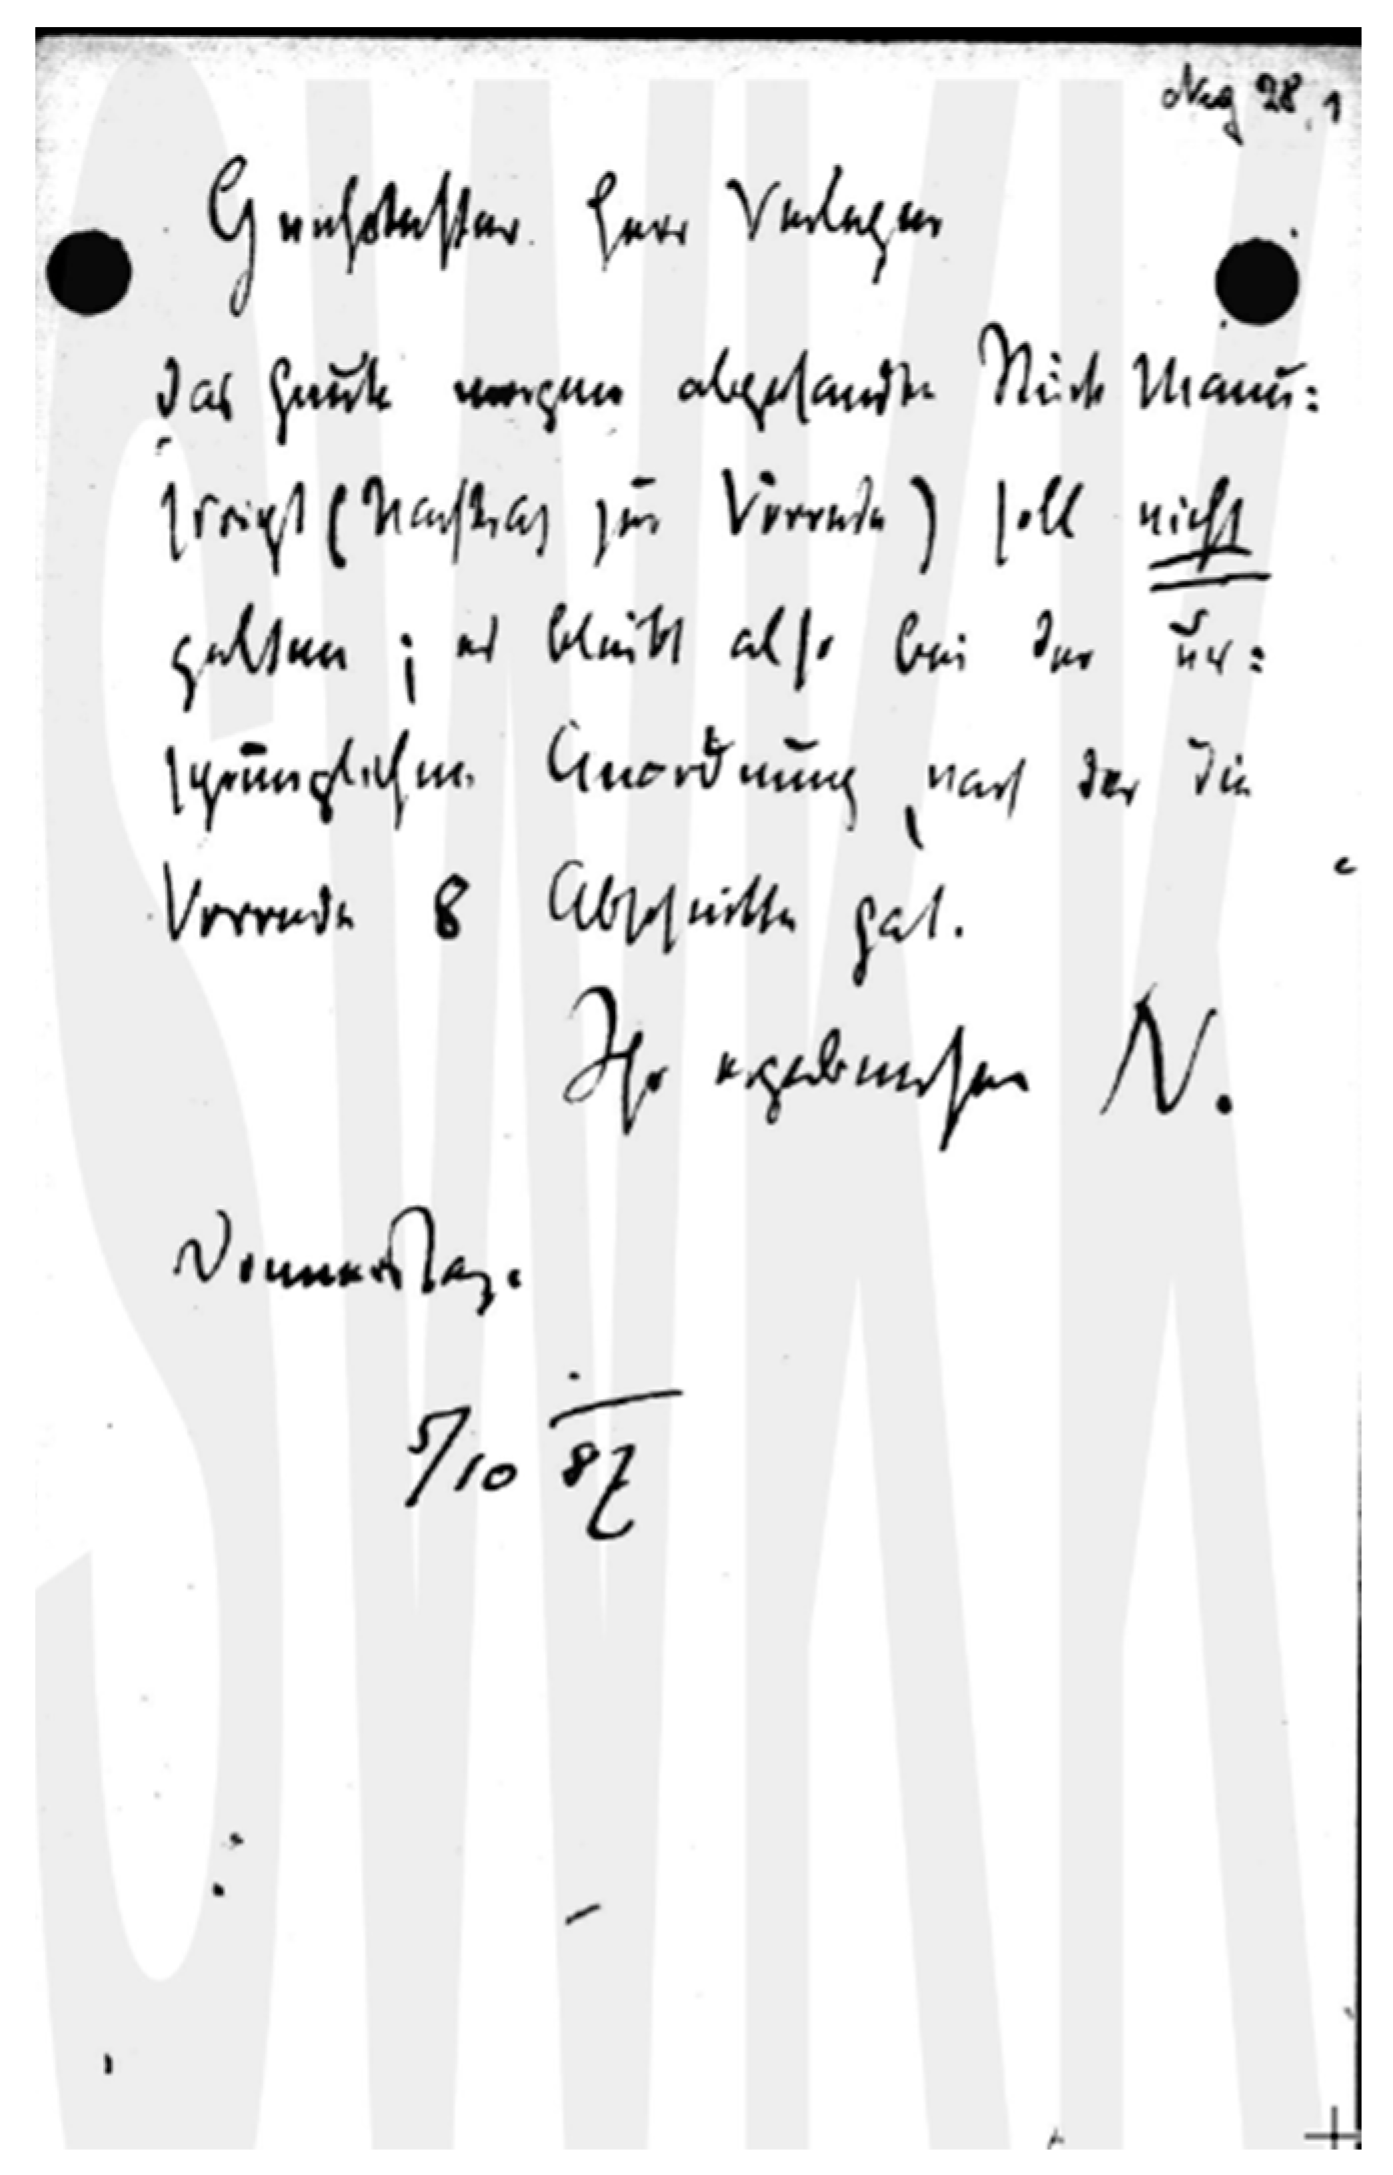 Neg 28, 1
Geehrtester Herr Verleger
das heute morgen abgesandte Stück Manu:
skript (Nachtrag zur Vorrede) soll nicht
gelten; es bleibt also bei der ur:
sprünglichen Anordnung, nach der die
Vorrede 8 Abschnitte hat.
Ihr ergebenster N.
Donnerstag.
5/10 87
SWKK